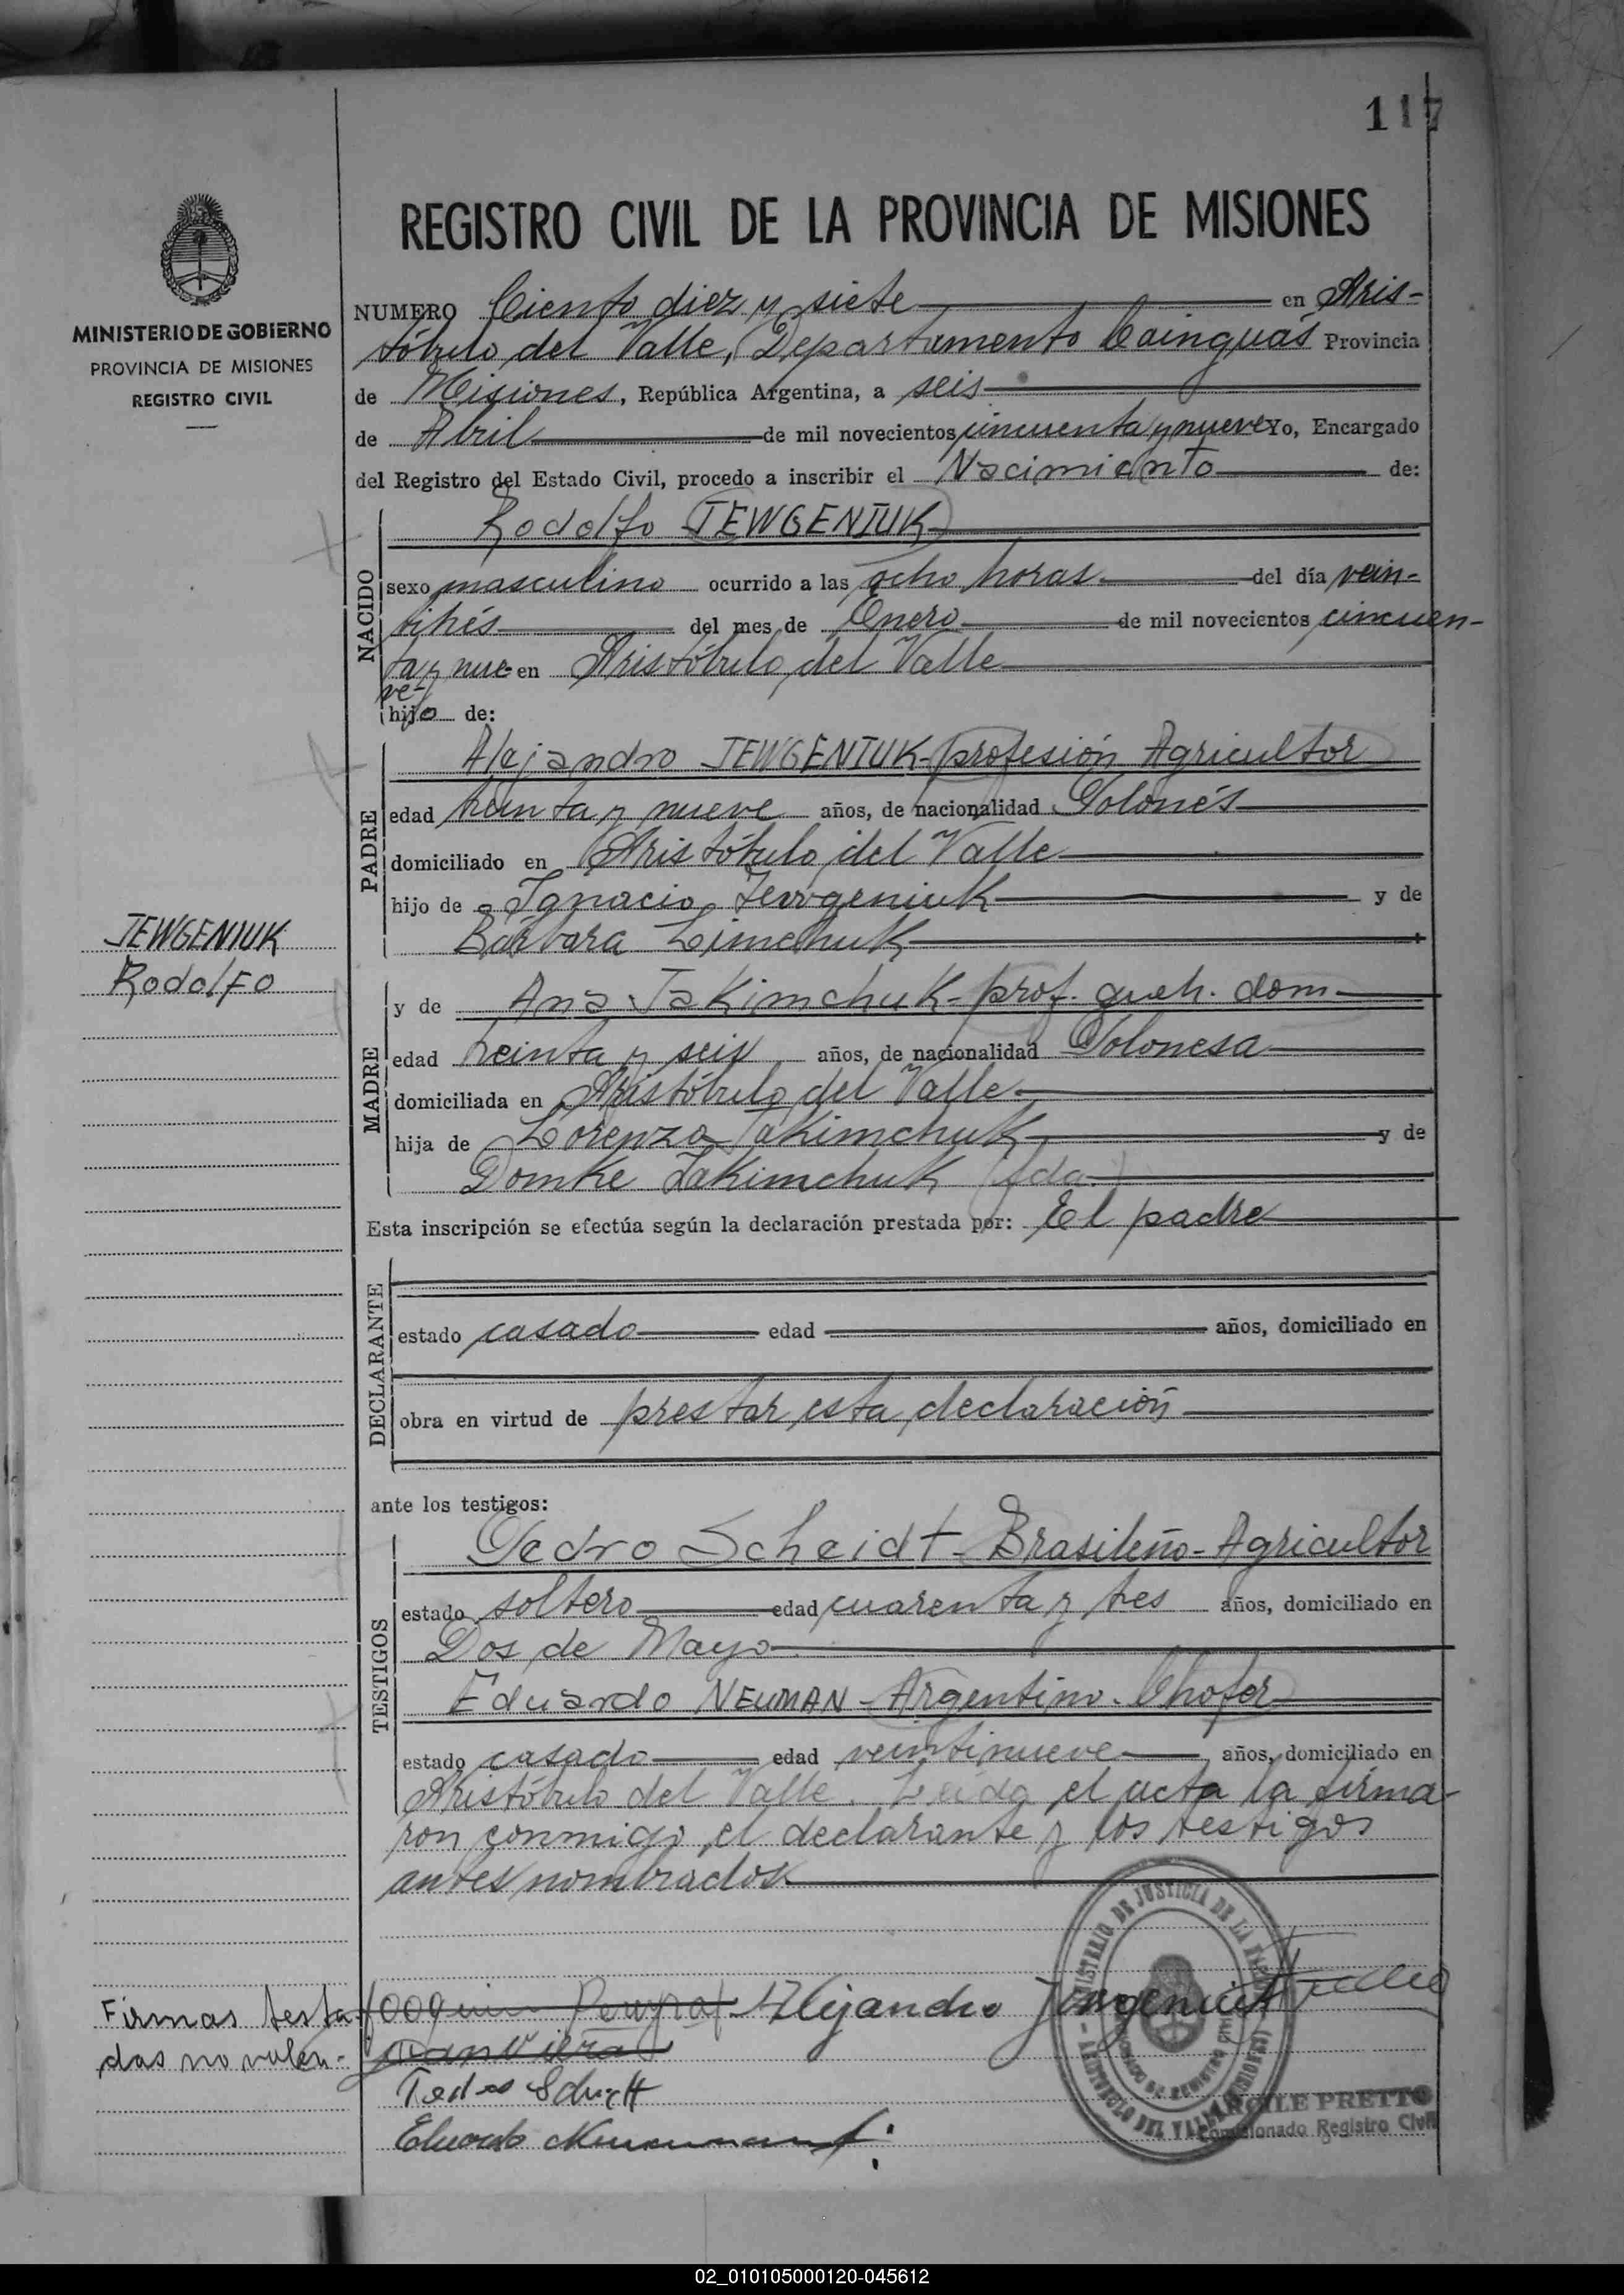 117
REGISTRO CIVIL DE LA PROVINCIA DE MISIONES
MINISTERIO DE GOBIERNO
PROVINCIA DE MISIONES
REGISTRO CIVIL
NUMERO Ciento diez y siete en Aris-
tóbulo del Valle, Departamento Cainguás Provincia
de Misiones, República Argentina, a seis
de Abril de mil novecientos cincuenta y nueve Yo, Encargado
del Registro del Estado Civil, procedo a inscribir el Nacimiento de:
NACIDO
Rodolfo JEWGENIUK
sexo masculino ocurrido a las ocho horas del día vein-
titrés del mes de Enero de mil novecientos cincuen-
ta y nue- en Aristóbulo del Valle
ve-
hijo de:
PADRE
Alejandro JEWGENIUK - profesión Agricultor
edad treinta y nueve años, de nacionalidad Polonés
domiciliado en Aristóbulo del Valle
hijo de Ignacio Jewgeniuk y de
Bárbara Limchuk
JEWGENIUK
Rodolfo
MADRE
y de Ana Jakimchuk - prof. queh. dom
edad treinta y seis años, de nacionalidad Polonesa
domiciliada en Aristóbulo del Valle
hija de Lorenzo Jakimchuk y de
Domke Jakimchuk (fda.)
Esta inscripción se efectúa según la declaración prestada por: El padre
DECLARANTE
estado casado edad años, domiciliado en
obra en virtud de prestar esta declaración
ante los testigos:
TESTIGOS
Pedro Scheidt - Brasileño - Agricultor
estado soltero edad cuarenta y tres años, domiciliado en
Dos de Mayo
Eduardo NEUMAN - Argentino - Chofer
estado casado edad veintinueve años, domiciliado en
Aristóbulo del Valle. Leida el acta la firma-
ron conmigo el declarante y los testigos
antes nombrados
Firmas testa-
das no valen-
Alejandro Jewgeniuk
MINISTERIO DE JUSTICIA DE LA
ARISTOBULO DEL VALLE (MISIONES)
PRETTO
Comisionado Registro Civil
02_010105000120-045612